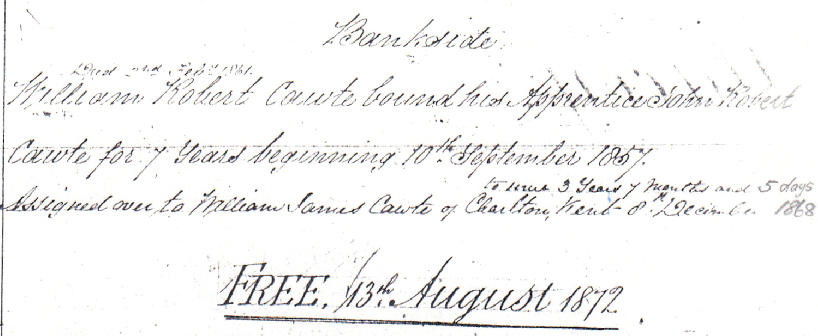 Bankside.
Died 2nd Feby 1861.
William Robert Cawte bound his Apprentice John Robert
Cawte for 7 Years beginning 10th September 1857.
to serve 3 Years 7 Months and 5 days
Assigned over to William James Cawte of Charlton, Kent 8th December 1868
FREE. 13th August 1872